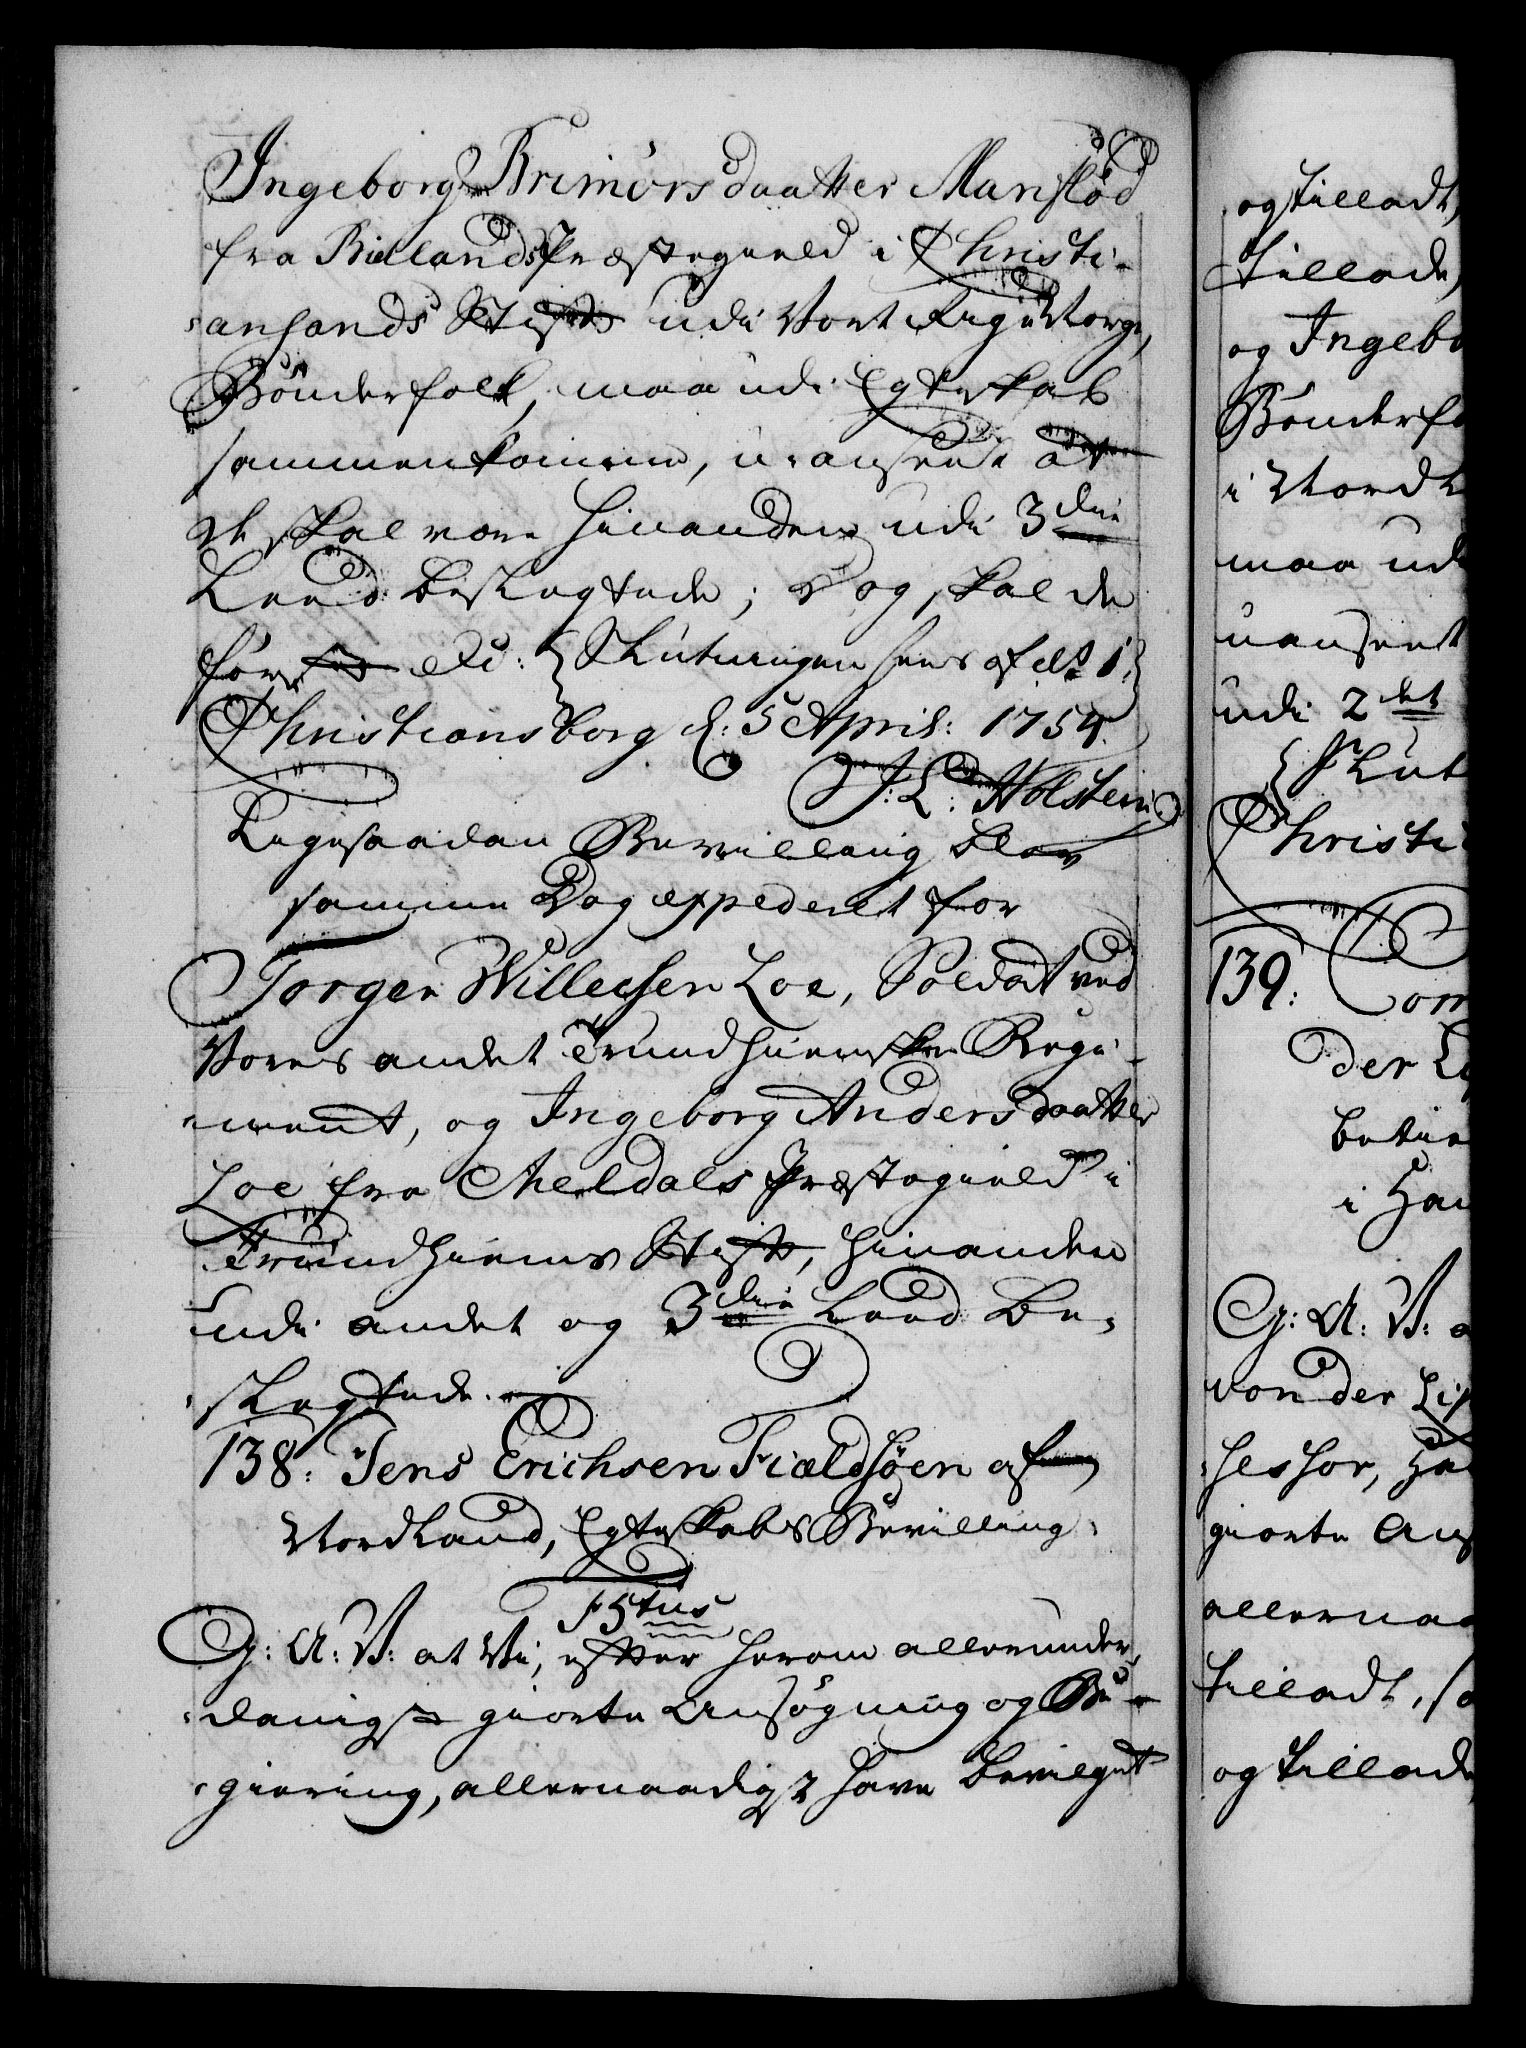 Ingeborg Brimørsdaatter Manflød
fra Biellands Præstegield i Christi-
ansands Stift udi Vort Rige Norge,
Bønderfolk, maa udi Egteskab
sammenkomme, uanseet at
de skal være hinanden udi 3die
Leed beslegtede; Dog skal de
først etc: {Slutningen sees af No 1}
Christiansborg d: 5 April: 1754.
J: L: Holstein
Ligesaadan Bevilling blev
samme Dag expederet for
Torger Willersen Loe, Soldat ved
Vores andet Trundhiemske Regi-
ment, og Ingeborg Andersdaatter
Loe fra Meldals Præstegield i
Trundhiems Stift, hinanden
udi andet og 3die Leed be-
slegtede.
138: Jens Erichsen Fieldsøen af
Nordland, Egteskabs Bevilling.
F 5tus
G: A: V: at Vi, efter herom allerunder-
danigst giorte Ansøgning og Be-
giering, allernaadigst have bevilget
og tilladt,
tillade,
og Ingebo
Bønderfo
i Nordl
maa udi
uanseet
udi 2det
{Slut
Christi
139: Com
der Li
betie
i Han
G: A: V: a
von der Lip
sessor, Ha
giorte Ans
allernaa
tilladt, so
og tillade